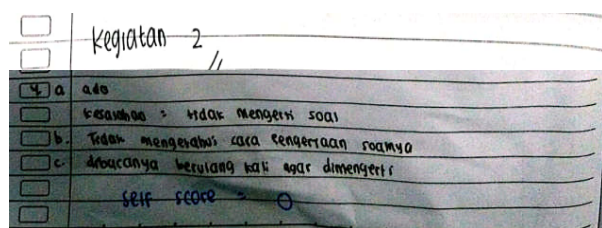 Kegiatan 2
4 a ada
kesalahan : tidak mengerti soal
b. Tidak mengetahui cara pengerjaan soalnya
c. dibacanya berulang kali agar dimengerti
self score = 0